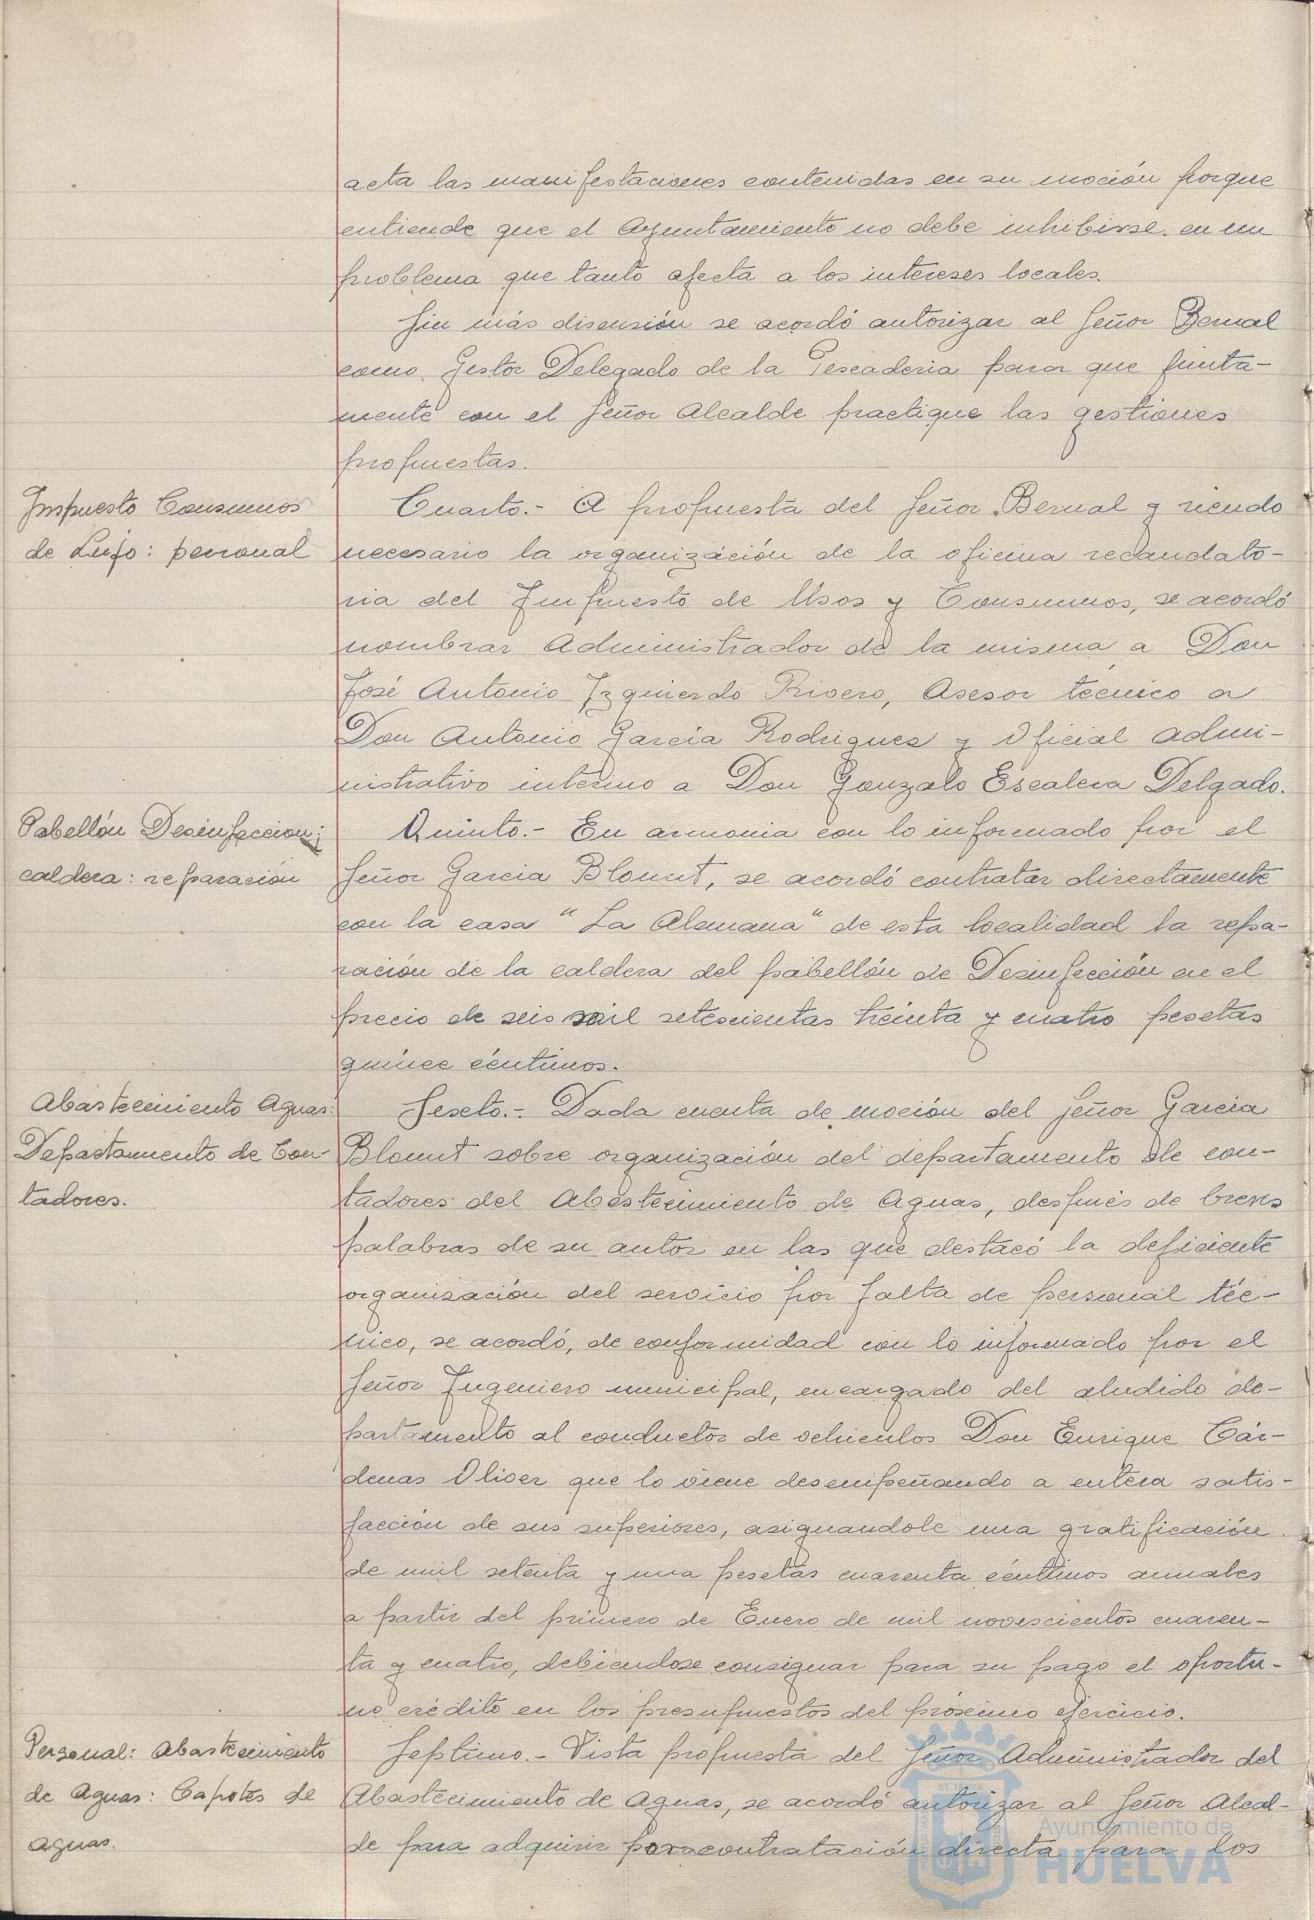 acta las manifestaciones contenidas en su moción porque
entiende que el Ayuntamiento no debe inhibirse en un
problema que tanto afecta a los intereses locales.
Sin más discusión se acordó autorizar al Señor Bernal
como Gestor Delegado de la Pescaderia para que junta-
mente con el Señor Alcalde practique las gestiones
propuestas.
Impuesto Consumos
de Lujo: personal
Cuarto.- A propuesta del Señor Bernal y siendo
necesario la organización de la oficina recaudato-
ria del Impuesto de Usos y Consumos, se acordó
nombrar Administrador de la misma a Don
José Antonio Izquierdo Rivero, Asesor técnico a
Don Antonio García Rodriguez y Oficial admi-
nistrativo interino a Don Gonzalo Escalera Delgado.
Pabellón Desinfeccion;
caldera: reparación
Quinto.- En armonia con lo informado por el
Señor Garcia Blount, se acordó contratar directamente
con la casa "La Alemana" de esta localidad la repa-
ración de la caldera del pabellón de Desinfección en el
precio de seis mil setescientas treinta y cuatro pesetas
quince céntimos.
Abastecimiento Aguas:
Departamento de Con-
tadores.
Sexto.- Dada cuenta de moción del Señor Garcia
Blount sobre organización del departamento de con-
tadores del Abestecimiento de Aguas, después de breves
palabras de su autor en las que destacó la deficiente
organización del servicio por falta de personal téc-
nico, se acordó, de conformidad con lo informado por el
Señor Ingeniero municipal, encargado del aludido de-
partamento al conductor de vehiculos Don Enrique Cár-
denas Oliver que lo viene desempeñando a entera satis-
facción de sus superiores, asignandole una gratificación
de mil setenta y una pesetas cuarenta céntimos anuales
a partir del primero de Enero de mil novescientos cuaren-
ta y cuatro, debiendose consignar para su pago el oportu-
no crédito en los presupuestos del próximo ejercicio.
Personal: Abastecimiento
de Aguas: Capotes de
aguas.
Septimo.- Vista propuesta del Señor Administrador del
Abastecimiento de Aguas, se acordó autorizar al Señor Alcal-
de para adquirir por contratación directa para los
Ayuntamiento de
HUELVA